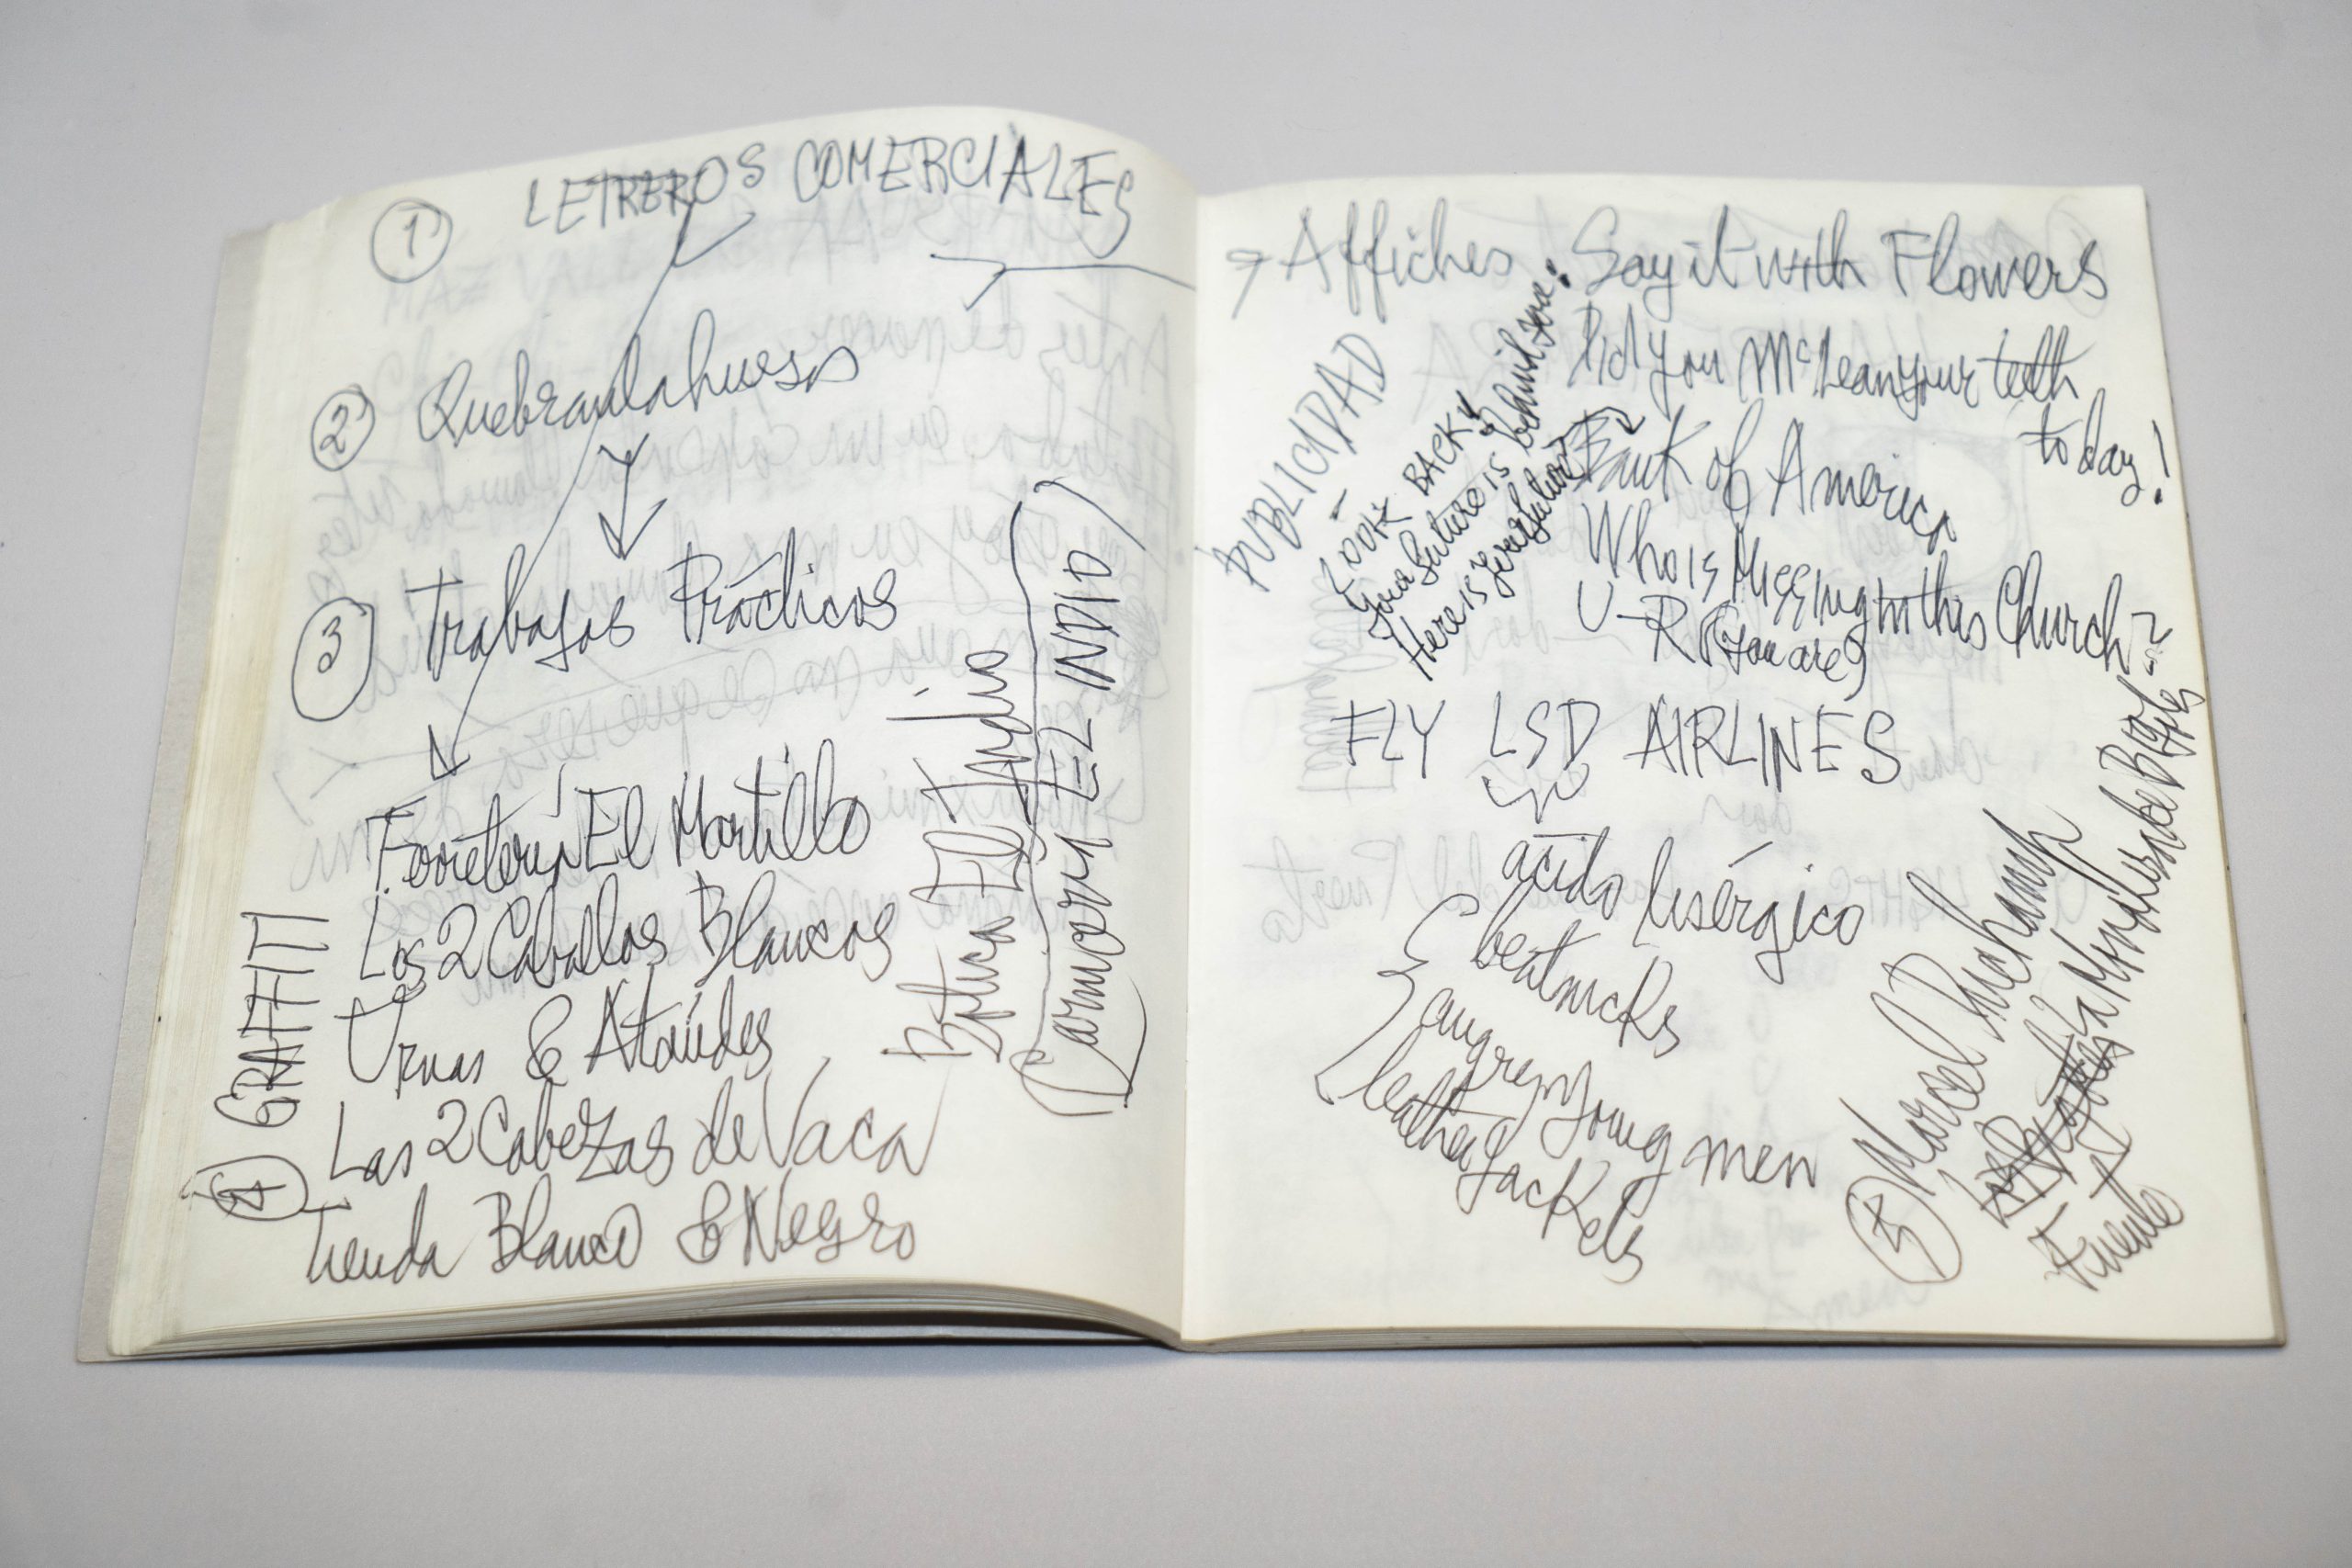 1 LETREROS COMERCIALES
2 Quebrantahuesos
3 Trabajos Prácticos
Ferretería El Martillo
Los 2 Caballos Blancos
Urnas & Ataúdes
Las 2 Cabezas de Vaca
Tienda Blanco & Negro
4 GRAFFITI
Botica El Indio
(Carnicería EL INDIO)
→ Affiches: Say it with Flowers
Did you McLean your teeth
today!
Bank of America
Who is Missing in this Church?
U-R (you are)
PUBLICIDAD
LOOK BACK
Your future is behind you
Here is your future
FLY LSD AIRLINES
ácido lisérgico
beatnicks
angry young men
leather jackets
5 Marcel Duchamp
Fuente